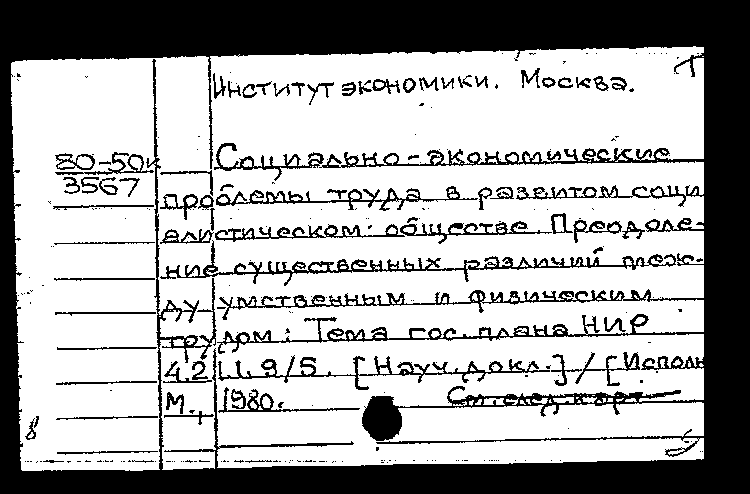 Институт экономики. Москва.
80-50к
3567
Социально-экономические
проблемы труда в развитом соци
алистическом обществе. Преодоле-
ние существенных различий меж-
ду умственным и физическим
трудом: Тема гос. плана НИР
4.2 11.9/5. [Науч. докл.] / [Исполн
М., 1980. См. след. карт
8